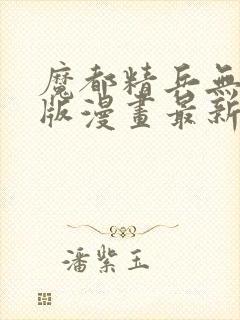 魔都精兵無
版漫畫最新
潘紫玉